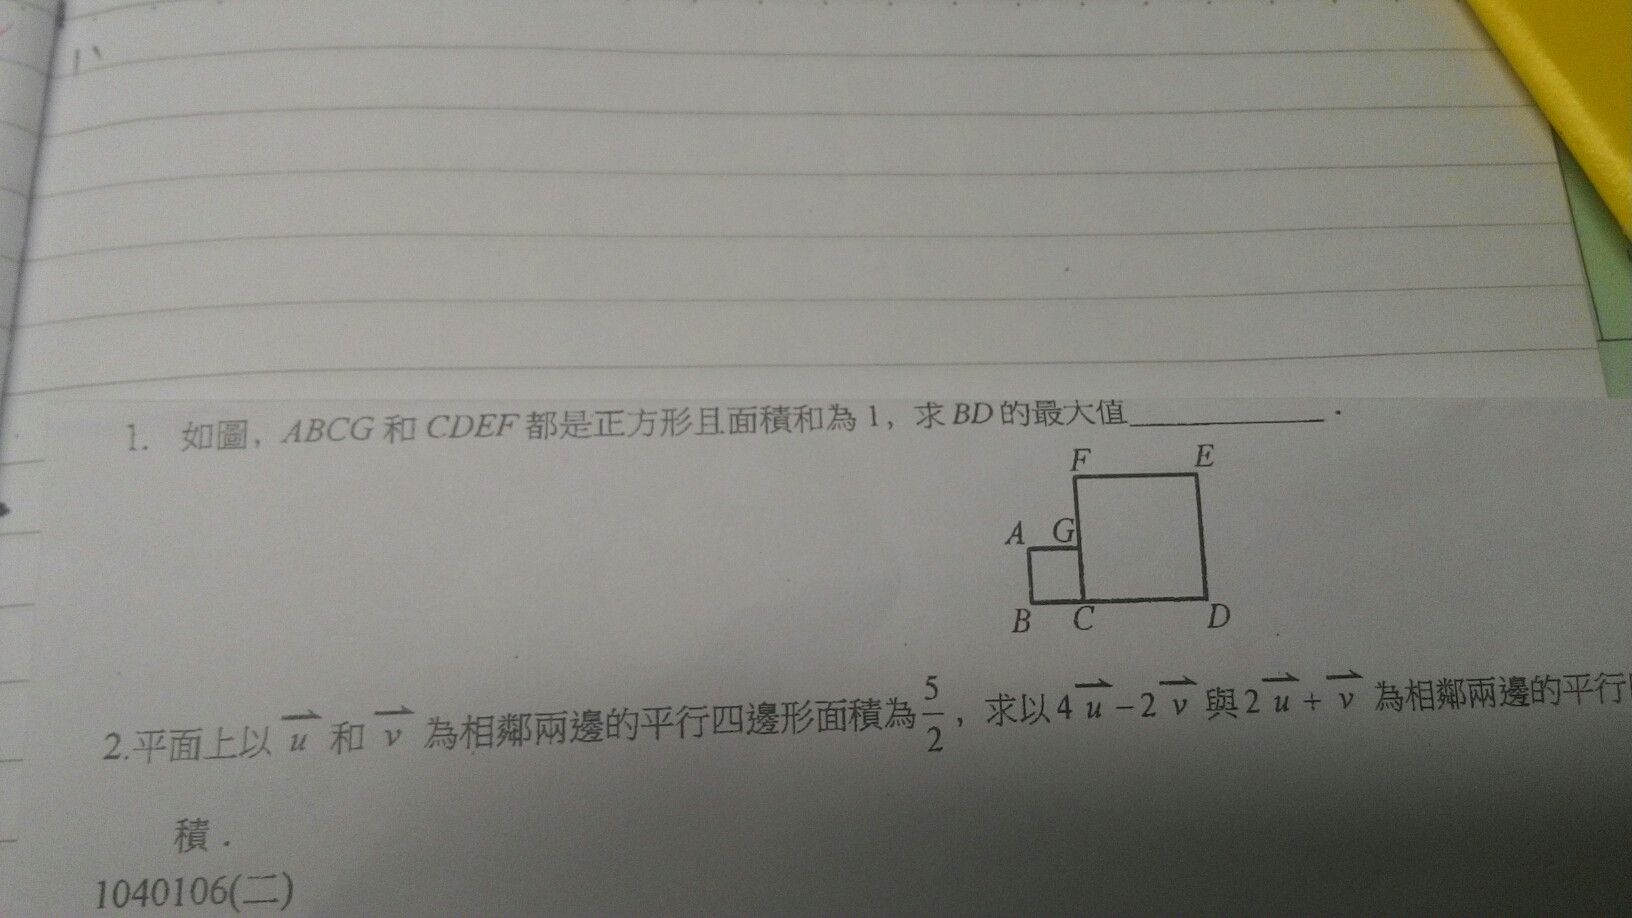 1. 如圖，ABCG 和 CDEF 都是正方形且面積和為 1，求 BD 的最大值__________．
F E
A G
B C D
2.平面上以 u⃗ 和 v⃗ 為相鄰兩邊的平行四邊形面積為 5/2，求以 4u⃗ − 2v⃗ 與 2u⃗ + v⃗ 為相鄰兩邊的平行
積．
1040106(二)